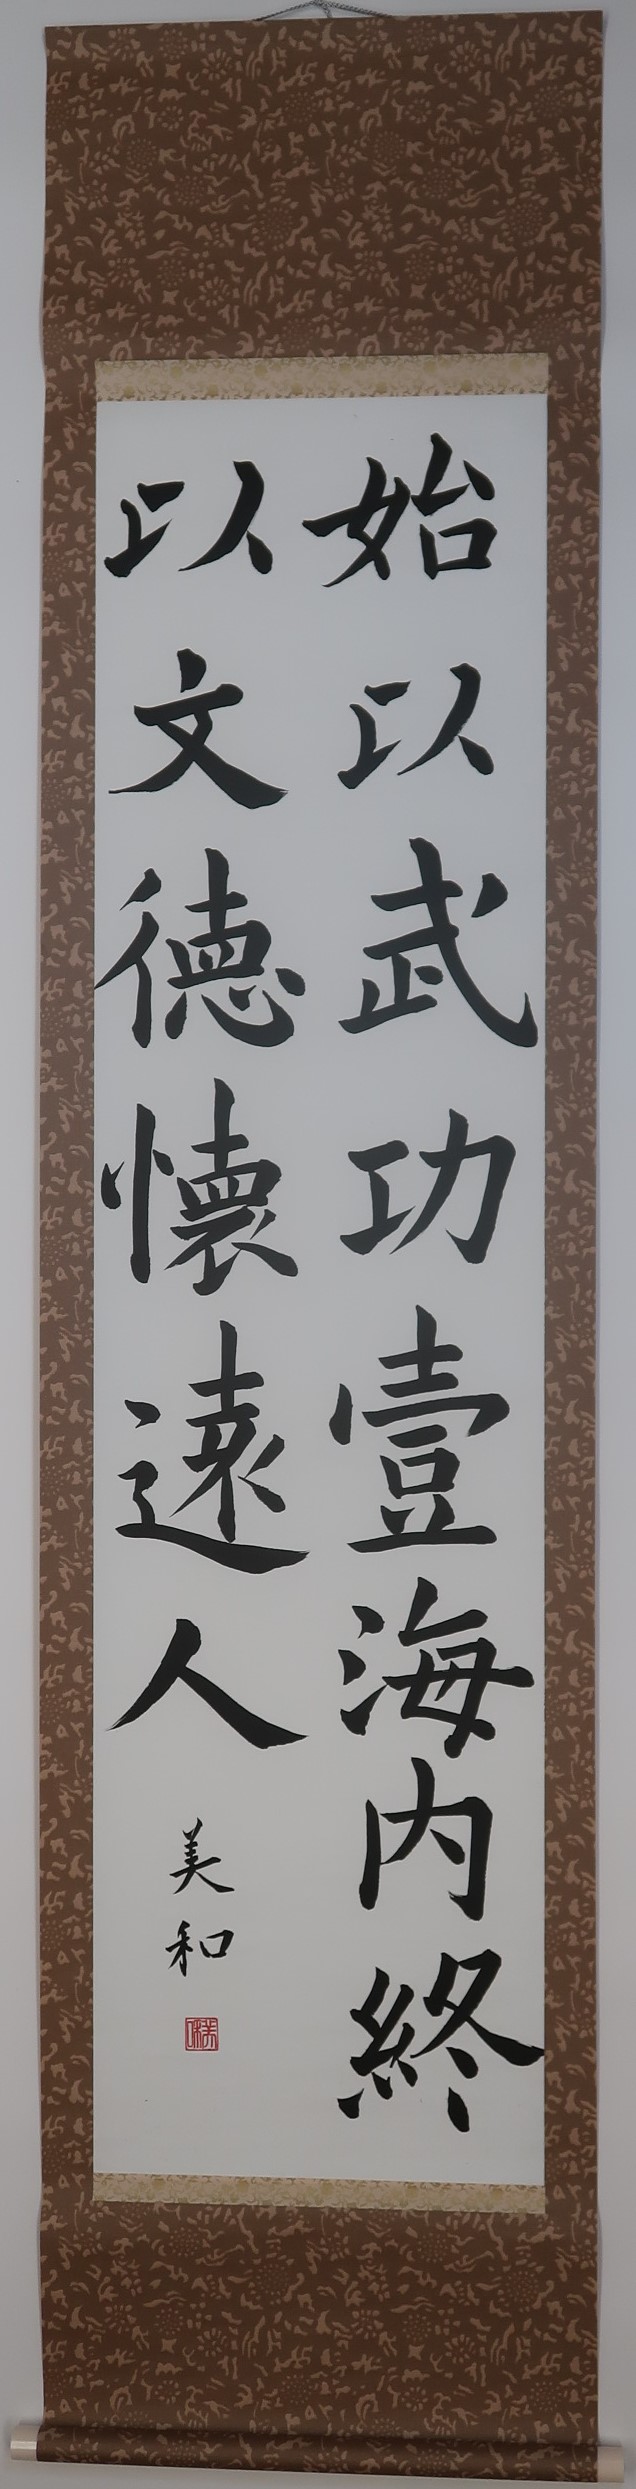 始以武功壹海内終
以文徳懐遠人
美和